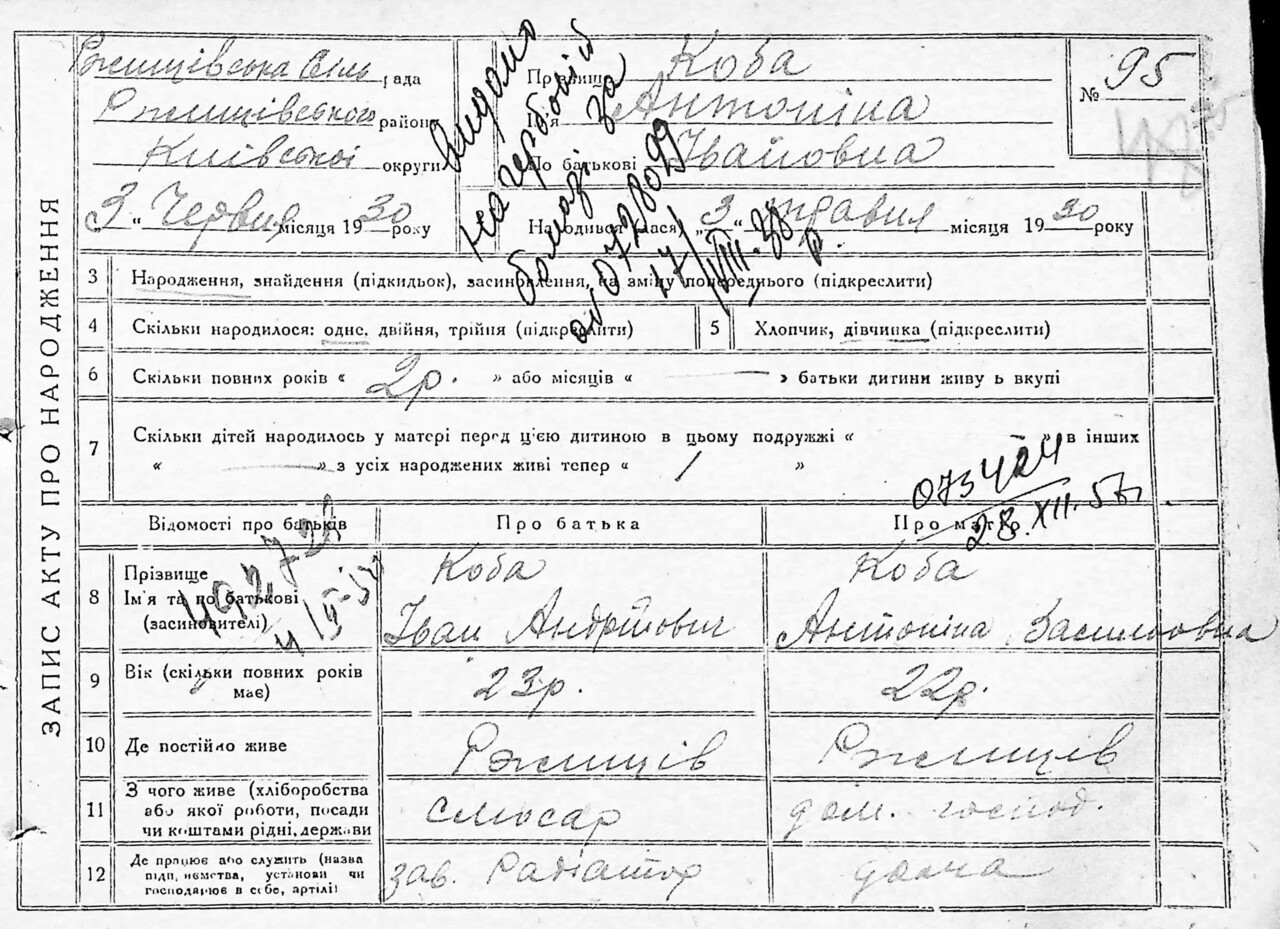 ЗАПИС АКТУ ПРО НАРОДЖЕННЯ
Ржищівська Сіль рада
Ржищівського району
Київської округи
3 „ Червня місяця 1930 року
Прізвище Коба
Ім'я Антоніна
По батькові Івановна
Народився (лася) „3“ травня місяця 1930 року
№ 95
видано
на гербовій
бомазі за
0728099
17/VIII.30 р.
3 Народження, знайдення (підкидьок), засиновлення, на зміну попереднього (підкреслити)
4 Скільки народилося: одне, двійня, трійня (підкреслити)
5 Хлопчик, дівчинка (підкреслити)
6 Скільки повних років « 2р. » або місяців « — » батьки дитини живуть вкупі
7 Скільки дітей народилось у матері перед ц'єю дитиною в цьому подружжі « » в інших
« — » з усіх народжених живі тепер « / »
073424
28.XII.57
Відомості про батьків
Про батька
Про матір
8 Прізвище
Ім'я та по батькові
(засиновителі)
Коба
Іван Андрійович
Коба
Антоніна Василовна
9 Вік (скільки повних років
має)
23р.
22р.
10 Де постійно живе
Ржищів
Ржищев
11 З чого живе (хліборобства
або якої роботи, посади
чи коштами рідні, держави
слюсар
дом. господ.
12 Де працює або служить (назва
підприємства, установи чи
господарює в себе, артілі)
зав. Радіатор
дома